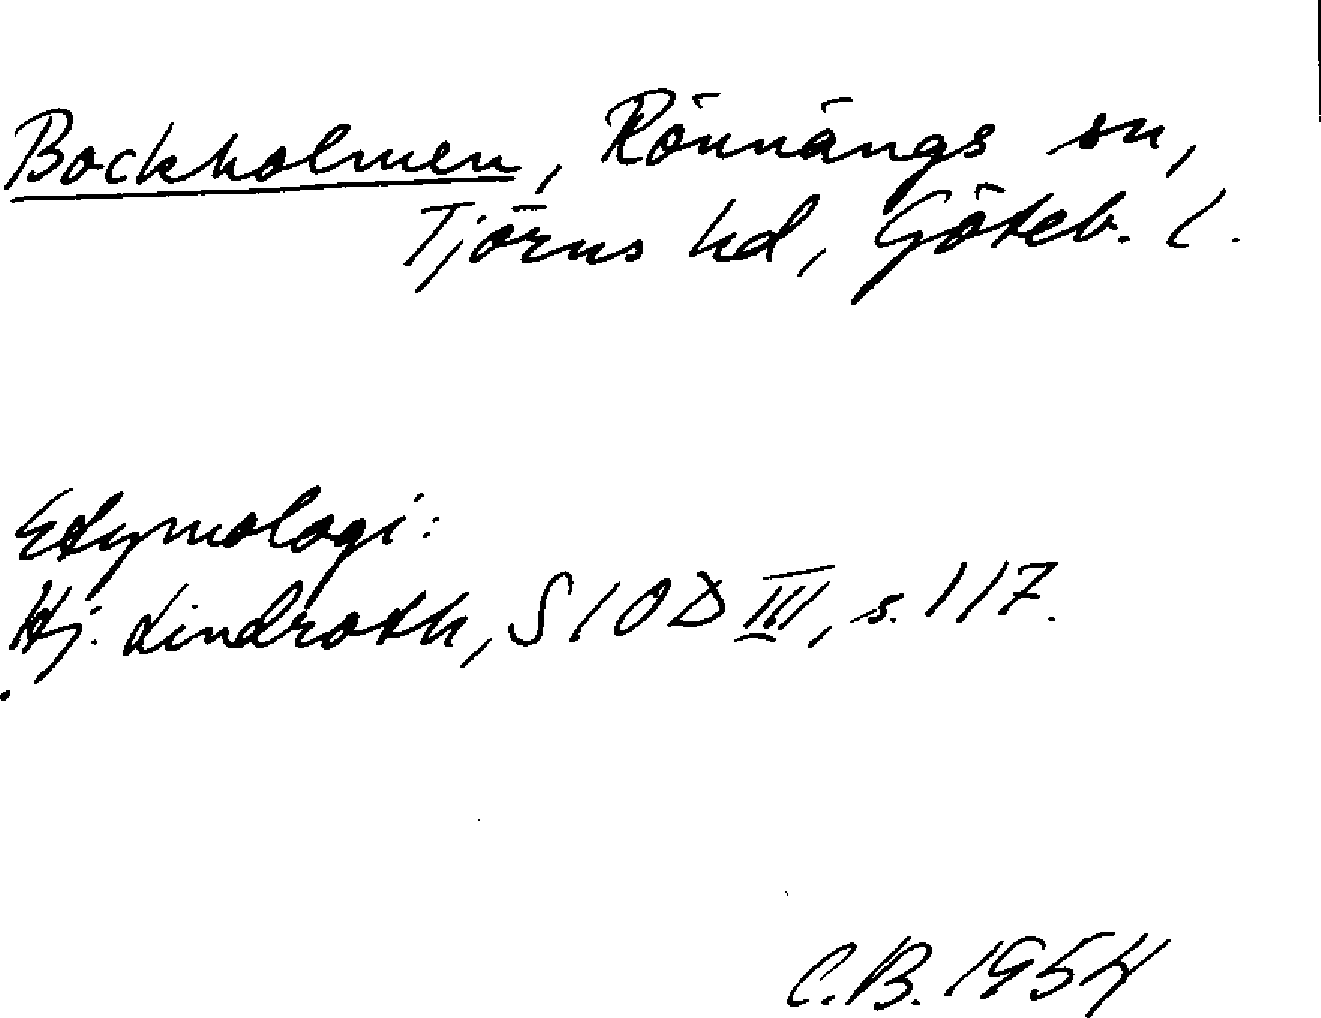 Bockholmen, Rönnängs sn,
Tjörns hd, Göteb. l.
Etymologi:
Hj. Lindroth, SIOD III, s. 117.
C.B. 1954